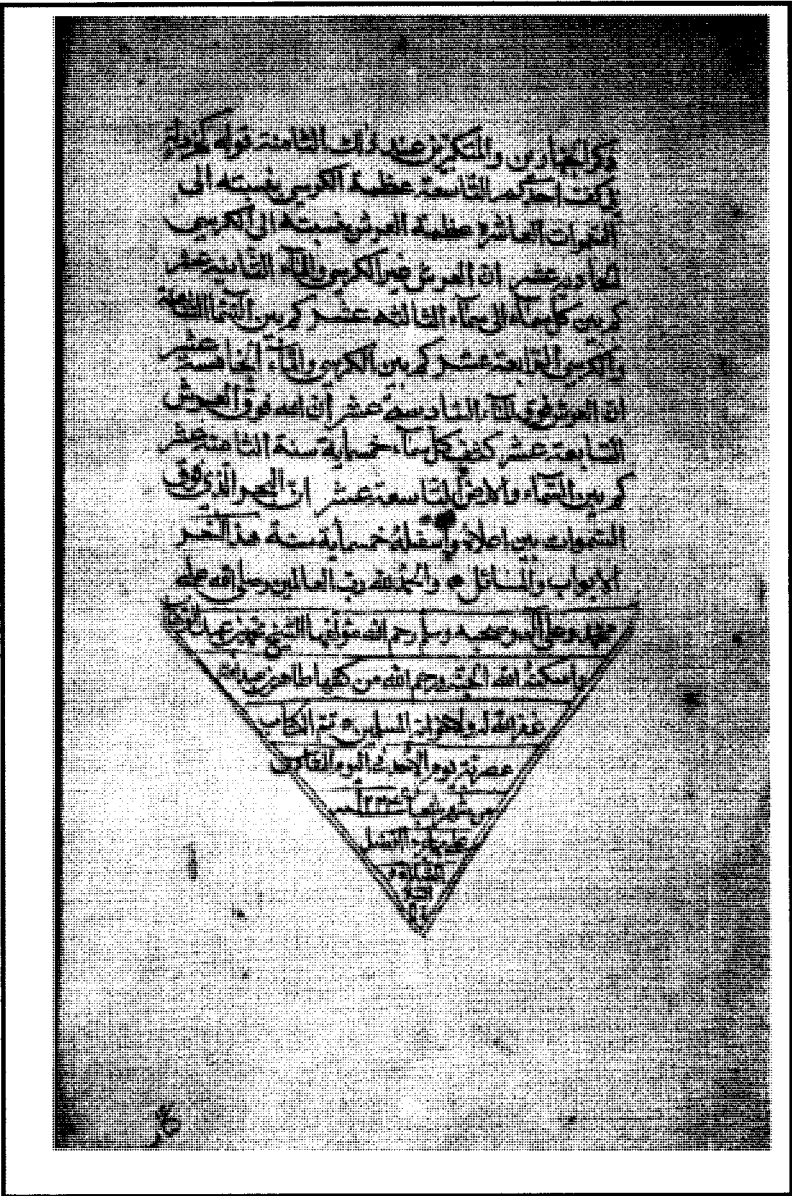 ذكر الجبارين والمتكبرين عند ذلك الثامنة قوله كخردلة
في كف احدكم التاسعة عظمة الكرسي بنسبته الى
السموات العاشرة عظمة العرش بنسبته الى الكرسي
الحادية عشر ان العرش غير الكرسي والماء الثانية عشر
كم بين كل سماء الى سماء الثالثة عشر كم بين السماء السابعة
والكرسي الرابعة عشر كم بين الكرسي والماء الخامسة عشر
ان العرش فوق الماء السادسة عشر ان الله فوق العرش
السابعة عشر كثف كل سماء خمسماية سنة الثامنة عشر
كم بين السماء والارض التاسعة عشر ان البحر الذي فوق
السموات بين اعلاه واسفله خمسماية سنة هذا اخر
الابواب والمسائل والحمد لله رب العالمين وصلى الله على
محمد وعلى اله وصحبه وسلم رحم الله مؤلفها الشيخ محمد بن عبد الوهاب
واسكنه الله الجنة ورحم الله من كتبها
غفر الله له ولاخوانه المسلمين تم الكتاب
عصرية يوم الاحد في اليوم
من شهر
على مهاجرها افضل
الصلاة و